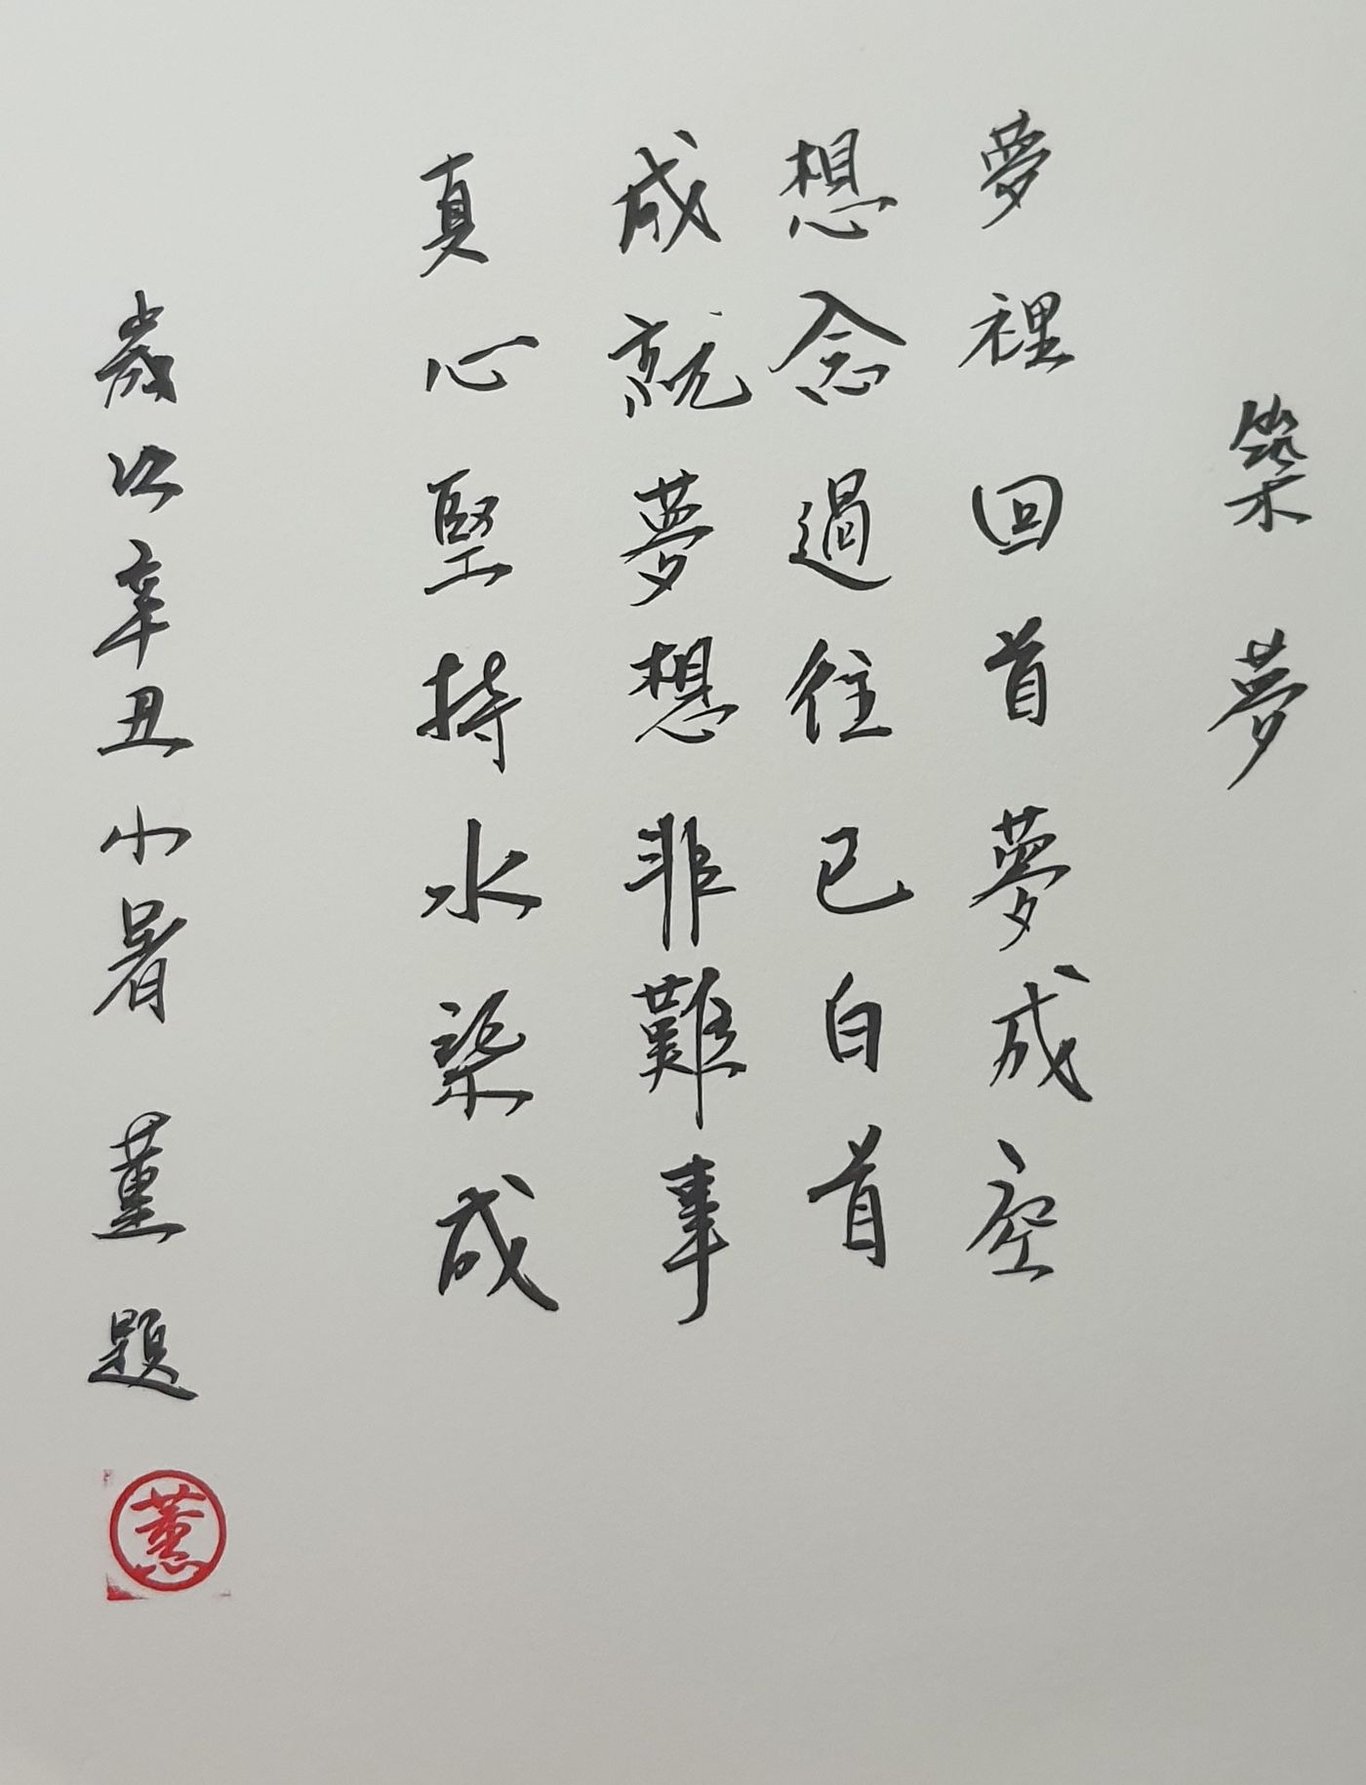 築夢
夢裡回首夢成空
想念過往已白首
成就夢想非難事
真心堅持水渠成
歲次辛丑小暑 薰題